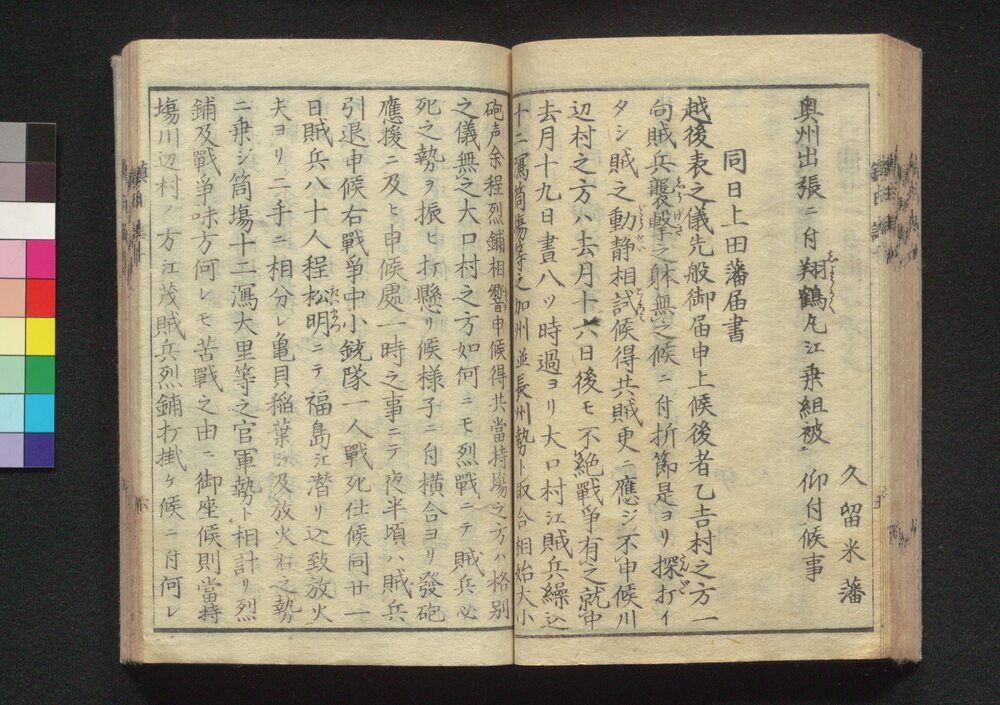 久留米藩
奥州出張ニ付翔鶴丸江乗組被仰付候事
同日上田藩届書
越後表之儀先般御届申上候後者乙吉村之方一
向賊兵襲撃之躰無之候ニ付折節是ヨリ探打イ
タシ賊之動静相試候得共賊更ニ應ジ不申候川
辺村之方ハ去月十六日後モ不絶戦争有之就中
去月十九日晝八ツ時過ヨリ大口村江賊兵繰込
十二潟筒場等之加州並長州勢ト取合相始大小
砲声余程烈鋪相響申候得共當持場之方ハ格別
之儀無之大口村之方如何ニモ烈戰ニテ賊兵必
死之勢ヲ振ヒ打懸リ候様子ニ付横合ヨリ發砲
應援ニ及ヒ申候處一時之事ニテ夜半頃ハ賊兵
引退申候右戰争中小銃隊一人戰死仕候同廿一
日賊兵八十人程松明ニテ福島江潜リ込致放火
夫ヨリ二手ニ相分レ亀貝稲葉江及放火右之勢
ニ乗ジ筒場十二潟大里等之官軍勢ト相計リ烈
鋪及戰争味方何レモ苦戰之由ニ御座候則當持
場川辺村ノ方江茂賊兵烈鋪打掛ケ候ニ付何レ